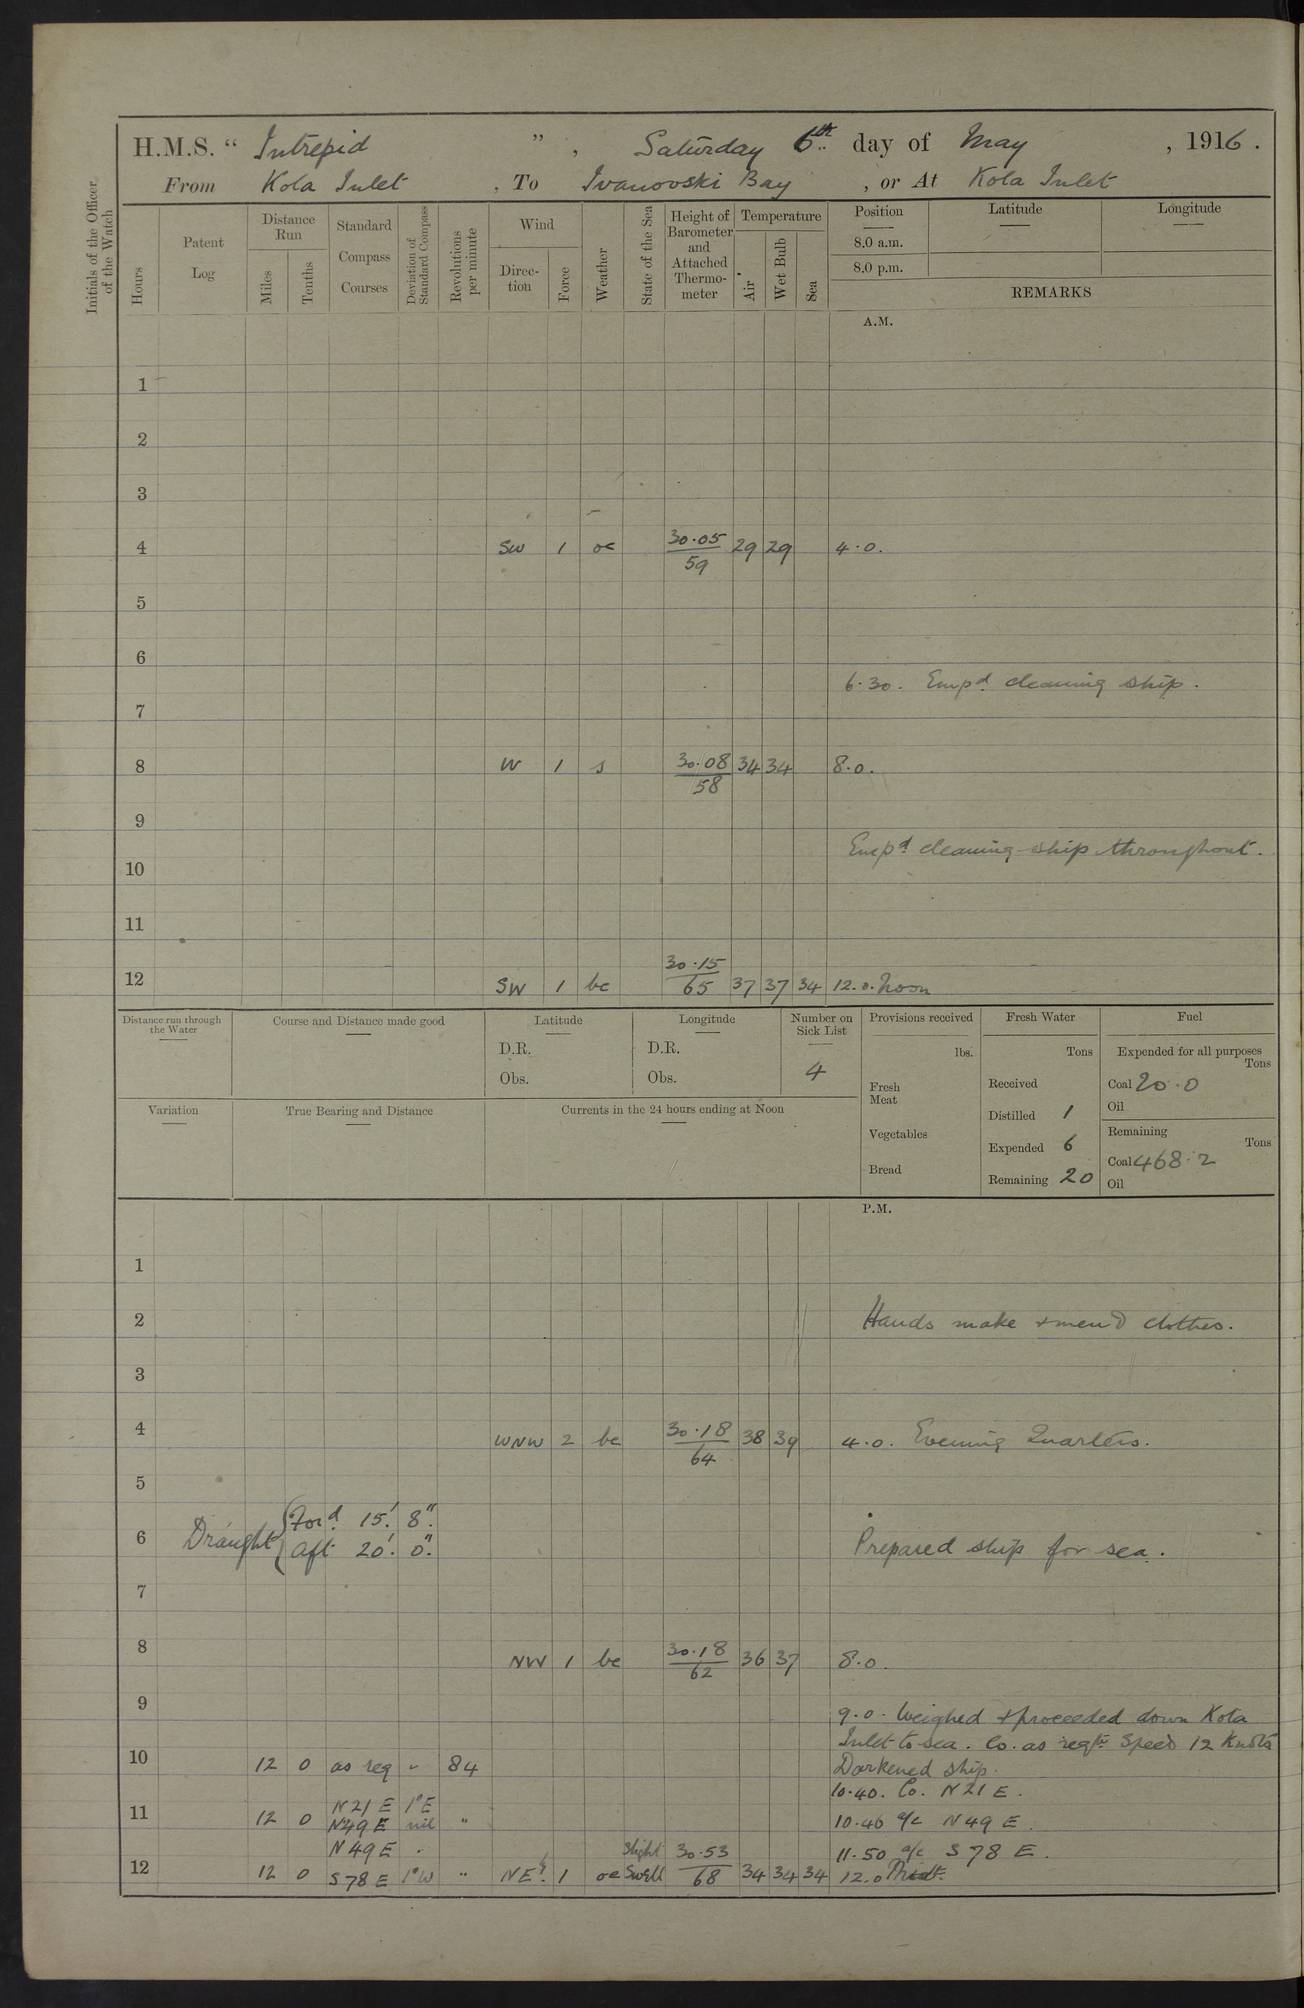 H.M.S. “ Intrepid ” , Saturday 6th day of May , 1916 .
From Kola Inlet , To Ivanovski Bay , or At Kola Inlet
Initials of the Officer of the Watch
Hours
Patent Log
Distance Run
Miles
Tenths
Standard Compass Courses
Deviation of Standard Compass
Revolutions per minute
Wind
Direc- tion
Force
Weather
State of the Sea
Height of Barometer and Attached Thermo- meter
Temperature
Air
Wet Bulb
Sea
Position
8.0 a.m.
8.0 p.m.
Latitude
Longitude
REMARKS
A.M.
1
2
3
4 SW 1 oc 30.05/59 29 29 4.0.
5
6
6.30. Empd cleaning ship.
7
8 W 1 s 30.08/58 34 34 8.0.
9
Empd cleaning ship throughout.
10
11
12 SW 1 bc 30.15/65 37 37 34 12.0. Noon
Distance run through the Water
Course and Distance made good
Latitude
D.R.
Obs.
Longitude
D.R.
Obs.
Number on Sick List
4
Provisions received
lbs.
Fresh Meat
Vegetables
Bread
Fresh Water
Tons
Received
Distilled 1
Expended 6
Remaining 20
Fuel
Expended for all purposes
Tons
Coal 20.0
Oil
Remaining
Tons
Coal 468.2
Oil
Variation
True Bearing and Distance
Currents in the 24 hours ending at Noon
P.M.
1
2 Hands make & mend clothes.
3
4 WNW 2 bc 30.18/64 38 39 4.0. Evening Quarters.
5
Draught { Ford. 15'. 8".
6 Aft. 20'. 0". Prepared ship for sea.
7
8 NW 1 bc 30.18/62 36 37 8.0.
9 9.0. Weighed & proceeded down Kola
Inlet to sea. Co. as reqte Speed 12 Knots
10 12 0 as req " 84 Darkened ship.
10.40. Co. N 21 E.
N 21 E 1°E
11 12 0 N 49 E nil " 10.46 a/c N 49 E.
N 49 E . Slight 30.53 11.50 a/c S 78 E.
12 12 0 S 78 E 1°W " NEy. 1 oc Swell 68 34 34 34 12.0 Midt.